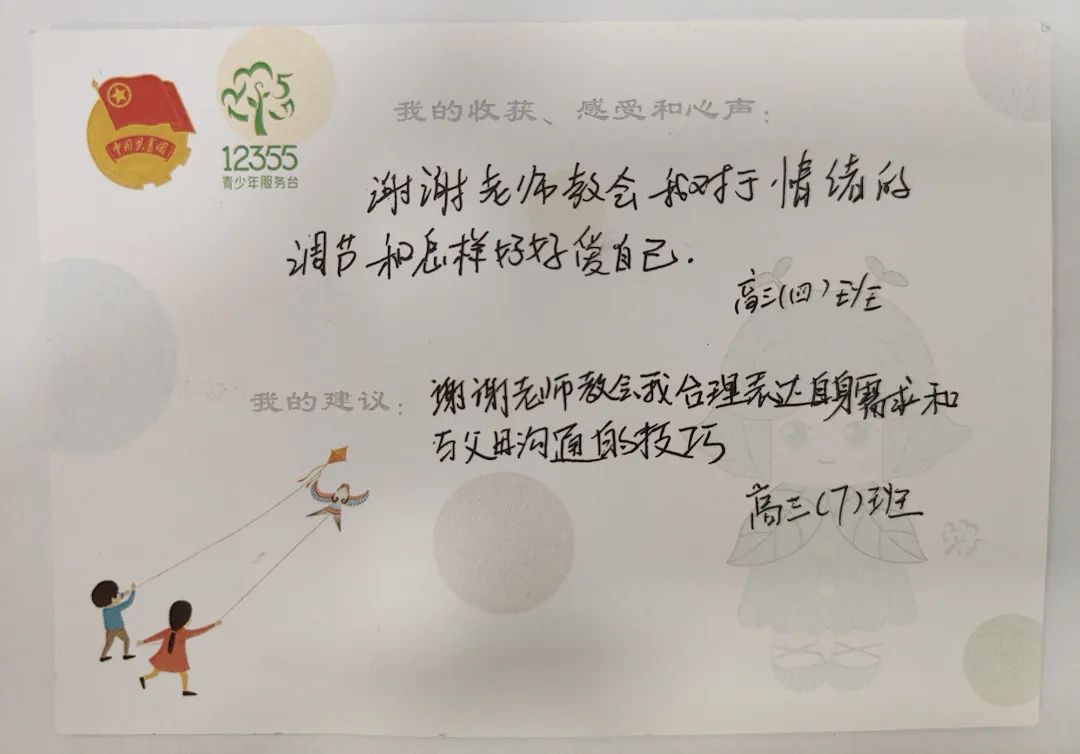 中国共青团
12355
青少年服务台
我的收获、感受和心声：
谢谢老师教会我对于情绪的
调节和怎样好好爱自己.
高三(四)班
我的建议：
谢谢老师教会我合理表达自身需求和
与父母沟通的技巧
高三(7)班